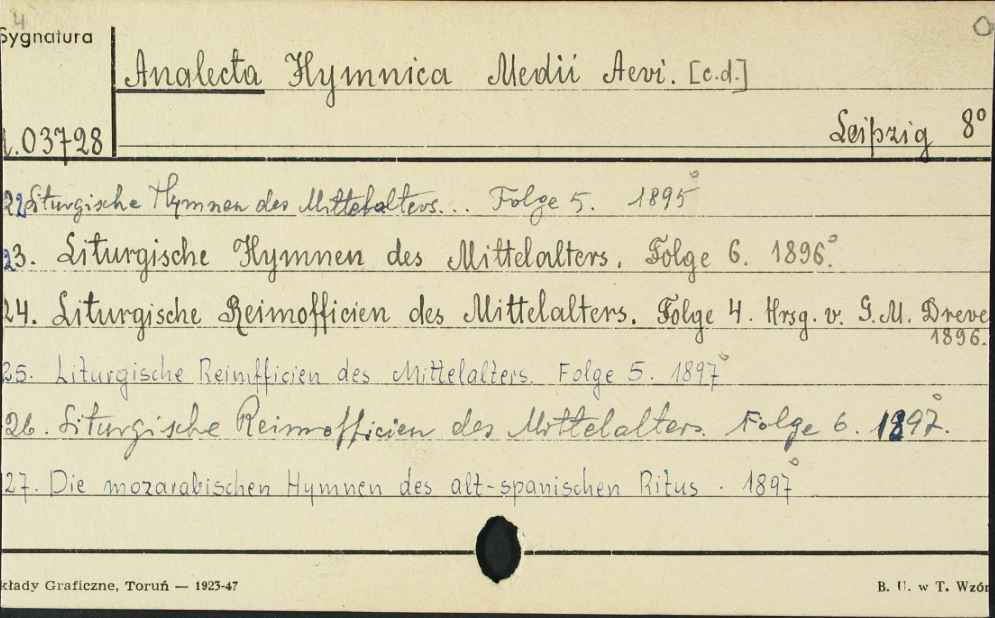 4
Sygnatura
Analecta Hymnica Medii Aevi. [c.d.]
03728
Leipzig 8°
22 Liturgische Hymnen des Mittelalters... Folge 5. 1895°
23. Liturgische Hymnen des Mittelalters. Folge 6. 1896.°
24. Liturgische Reimofficien des Mittelalters. Folge 4. Hrsg. v. G. M. Dreve
1896.
25. Liturgische Reimfficien des Mittelalters. Folge 5. 1897°
26. Liturgische Reimofficien des Mittelalters. Folge 6. 1897.°
27. Die mozarabischen Hymnen des alt-spanischen Ritus. 1897°
kłady Graficzne, Toruń — 1923-47
B. U. w T. Wzór